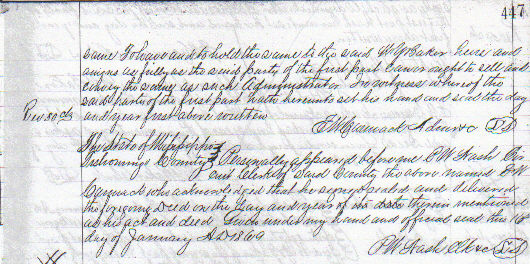 447
same To have and to hold the same to the said M Y Baker heirs and
assigns as fully as the said party of the first part can or ought to sell and
convey the same as such Administrator In witness whereof the
said party of the first part hath hereunto set his hand and seal the day
and year first above written
Rev 50 cts
Carmack Admr &c
The State of Mississippi
Tishomingo County Personally appeared before me P W Nash Cir
cuit Clerk of said County the above named
Carmack who acknowledged that he signed sealed and delivered
the foregoing Deed on the day and year of its date therein mentioned
as his act and deed Given under my hand and official seal this 16
day of January A D 1869
P W Nash Clk &c